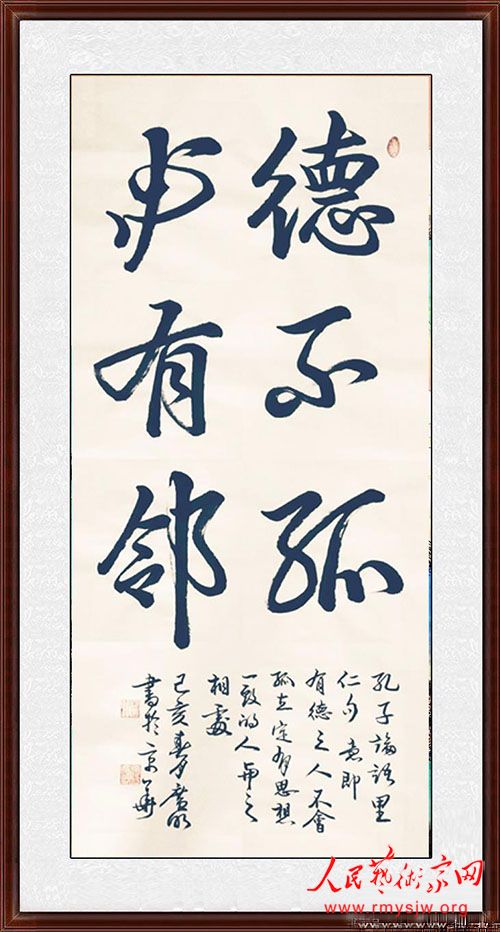 德不孤
必有邻
孔子論語里
仁句 意即
有德之人不會
孤立 定有思想
一致的人與之
相處
己亥春月
書於京華
人民藝術家网
www.rmysjw.org